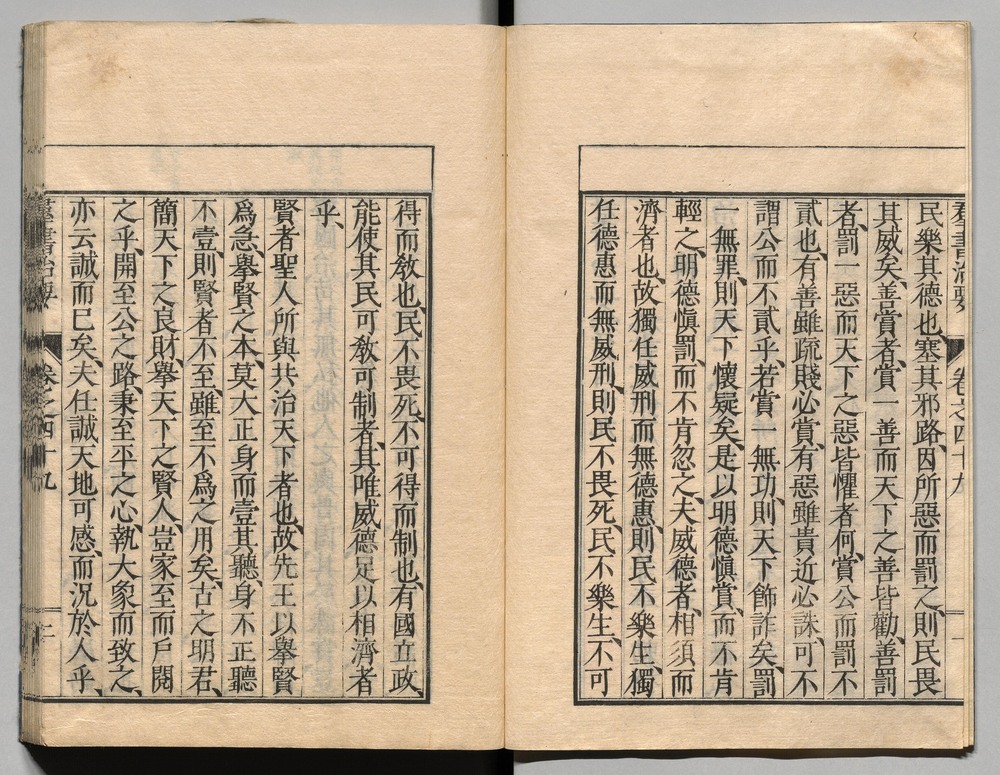 羣書治要 卷之四十九 一
民樂其德也、塞其邪路、因所惡而罰之、則民畏
其威矣、善賞者、賞一善而天下之善皆勸、善罰
者、罰一惡而天下之惡皆懼者何、賞公而罰不
貳也、有善雖疏賤必賞、有惡雖貴近必誅、可不
謂公而不貳乎、若賞一無功、則天下飾詐矣、罰
一無罪、則天下懷疑矣、是以明德愼賞、而不肯
輕之、明德愼罰、而不肯忽之、夫威德者、相須而
濟者也、故獨任威刑而無德惠、則民不樂生、獨
任德惠而無威刑、則民不畏死、民不樂生、不可
得而敎也、民不畏死、不可得而制也、有國立政、
能使其民可敎可制者、其唯威德足以相濟者
乎、
賢者聖人所與共治天下者也、故先王以舉賢
爲急、舉賢之本、莫大正身而壹其聽、身不正聽
不壹、則賢者不至、雖至不爲之用矣、古之明君、
簡天下之良財、舉天下之賢人、豈家至而戶閱
之乎、開至公之路、秉至平之心、執大象而致之、
亦云誠而巳矣、夫任誠天地可感、而況於人乎、
羣書治要 卷之四十九 二